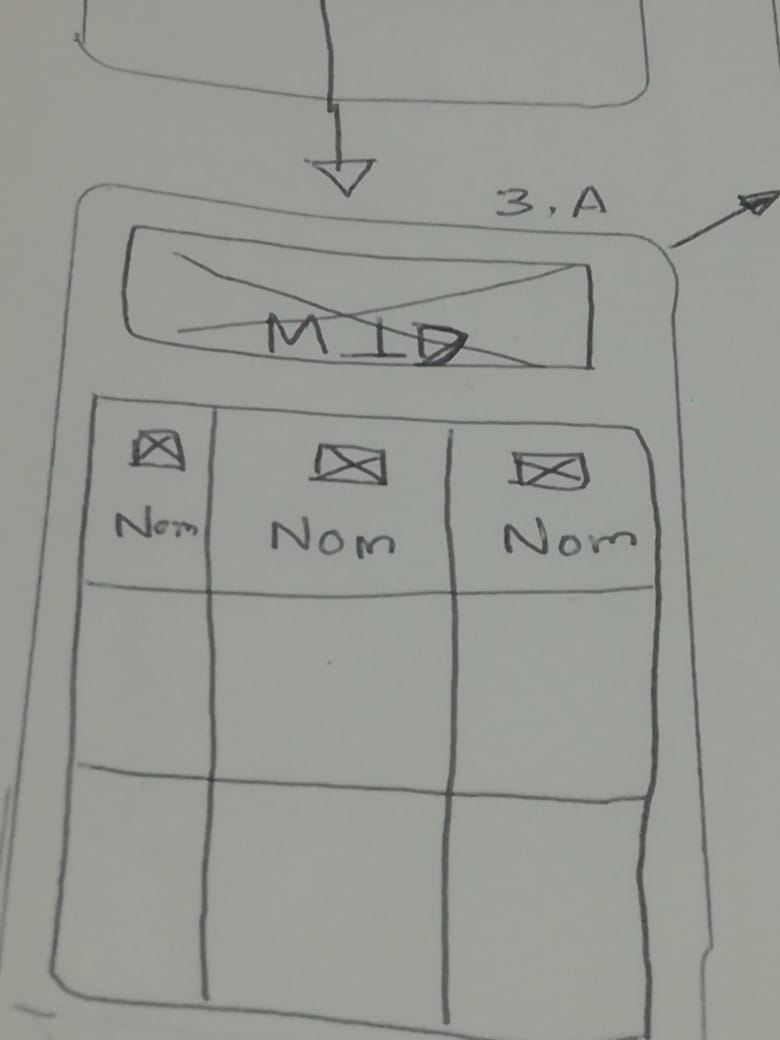 3.A
MID
Nom Nom Nom